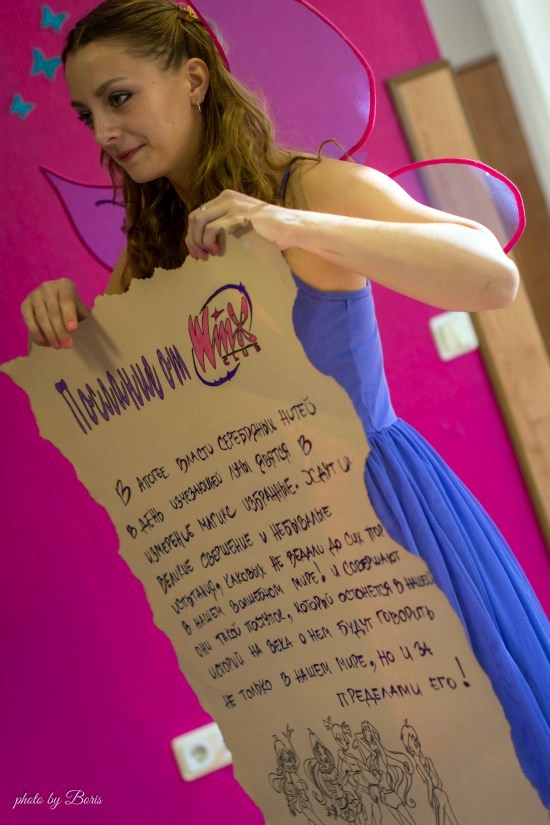 Послание от Winx Club
В апогее власти серебряных нитей
в день исчезающей луны явятся в
измерение Магикс избранные. Ждут их
великие свершение и небывалые
испытания, каковых не ведали до сих пор
в нашем волшебном мире! И совершают
они такой поступок, который останется в нашей
историй на века о нем будут говорить
не только в нашем мире, но и за
пределами его!
photo by Boris